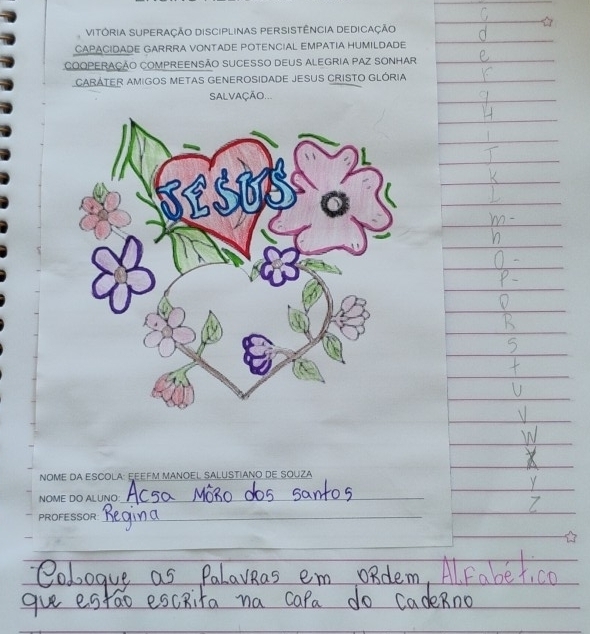 VITÓRIA SUPERAÇÃO DISCIPLINAS PERSISTÊNCIA DEDICAÇÃO
CAPACIDADE GARRRA VONTADE POTENCIAL EMPATIA HUMILDADE
COOPERAÇÃO COMPREENSÃO SUCESSO DEUS ALEGRIA PAZ SONHAR
CARÁTER AMIGOS METAS GENEROSIDADE JESUS CRISTO GLÓRIA
SALVAÇÃO...
JESUS
NOME DA ESCOLA: EEEFM MANOEL SALUSTIANO DE SOUZA
NOME DO ALUNO: Acsa Môro dos santos
PROFESSOR: Regina
Coloque as Palavras em ordem Alfabético
que estão escrita na capa do caderno
c
d
e
F
g
H
i
J
K
L
m-
n
O-
P-
Q
R
S
t
U
V
W
X
Y
Z